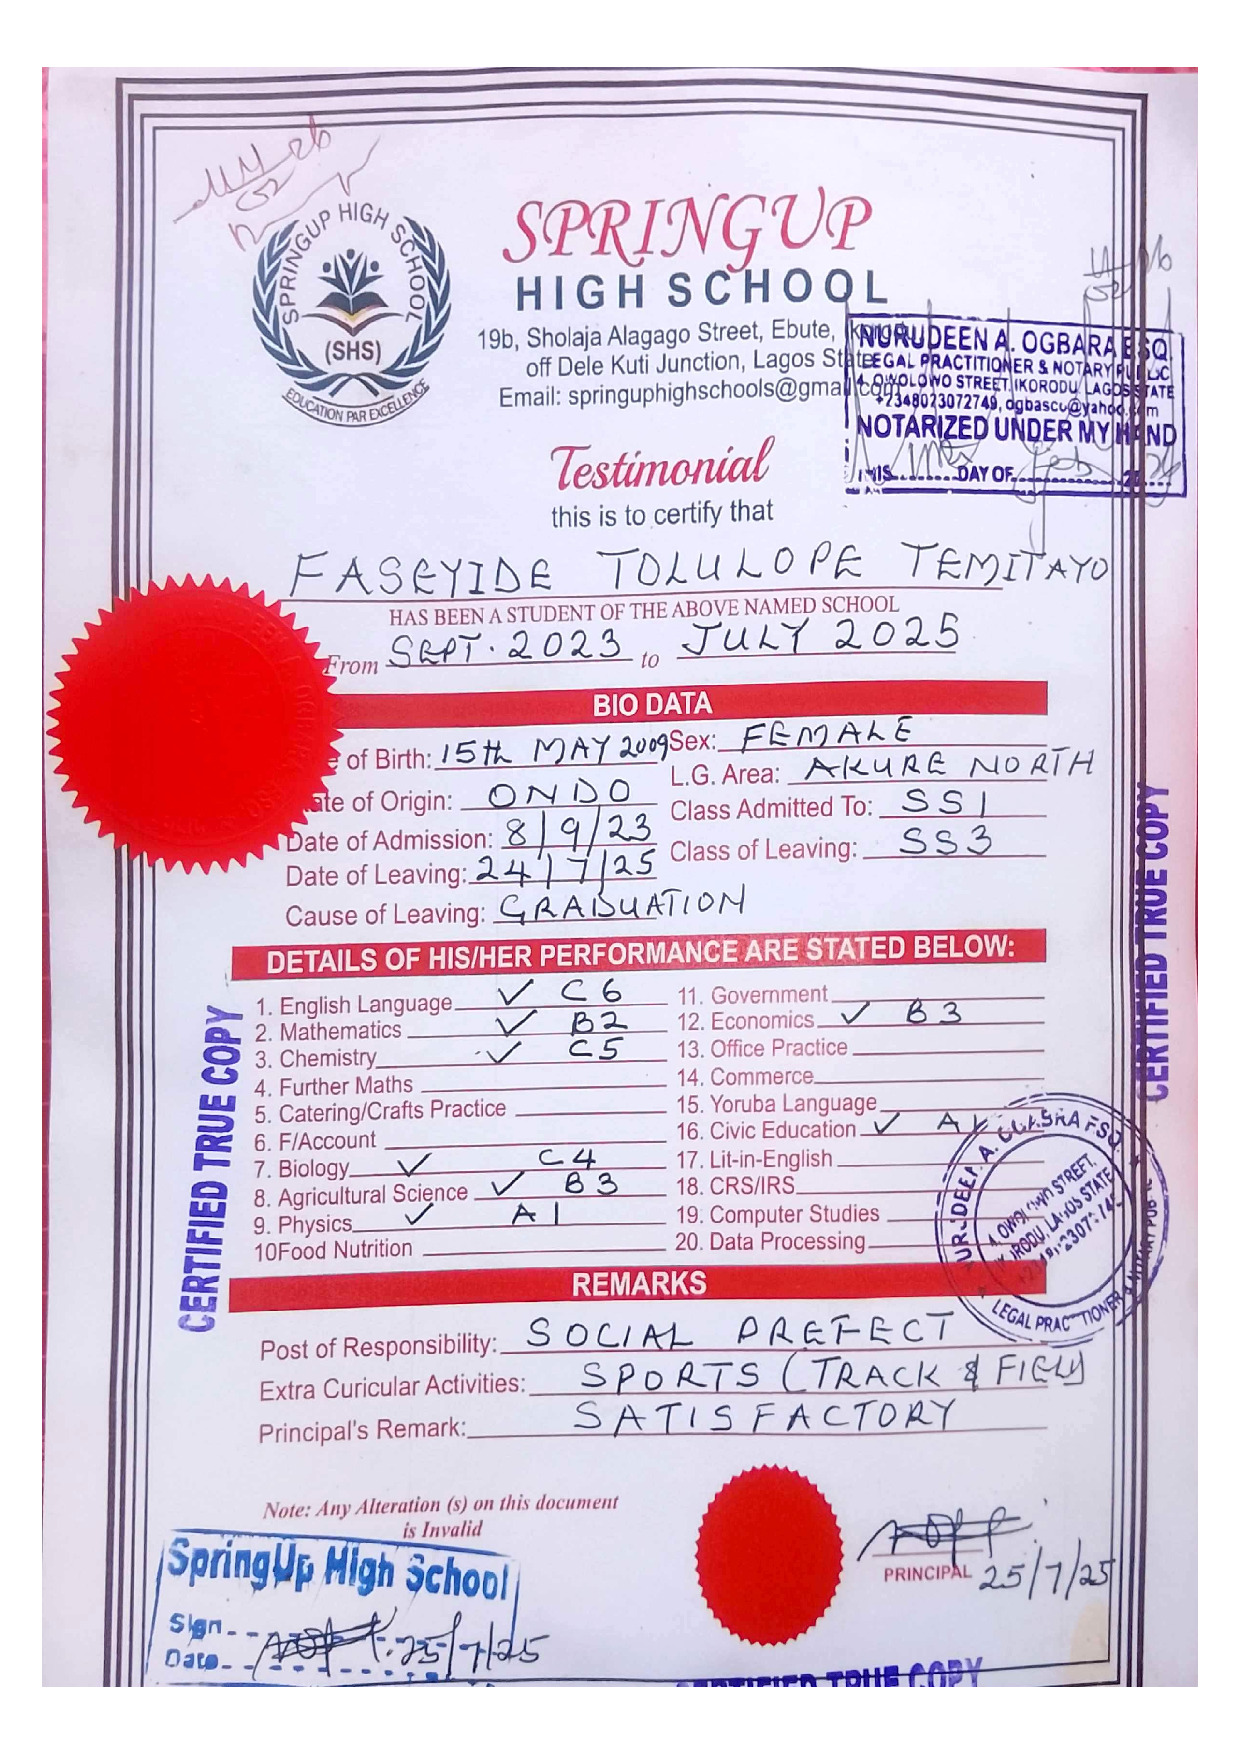 SPRINGUP HIGH SCHOOL
(SHS)
EDUCATION PAR EXCELLENCE
SPRINGUP
HIGH SCHOOL
19b, Sholaja Alagago Street, Ebute,
off Dele Kuti Junction, Lagos State
Email: springuphighschools@gmail.com
NURUDEEN A. OGBARA ESQ
LEGAL PRACTITIONER & NOTARY PUBLIC
4, OWOLOWO STREET, IKORODU, LAGOS STATE
+2348023072749, ogbascu@yahoo.com
NOTARIZED UNDER MY HAND
THIS DAY OF Feb
Testimonial
this is to certify that
FASEYIDE TOLULOPE TEMITAYO
HAS BEEN A STUDENT OF THE ABOVE NAMED SCHOOL
From SEPT. 2023 to JULY 2025
BIO DATA
of Birth: 15th MAY 2009 Sex: FEMALE
L.G. Area: AKURE NORTH
ate of Origin: ONDO Class Admitted To: SS1
Date of Admission: 8/9/23 Class of Leaving: SS3
Date of Leaving: 24/7/25
Cause of Leaving: GRADUATION
DETAILS OF HIS/HER PERFORMANCE ARE STATED BELOW:
1. English Language ✓ C6
2. Mathematics ✓ B2
3. Chemistry ✓ C5
4. Further Maths
5. Catering/Crafts Practice
6. F/Account
7. Biology ✓ C4
8. Agricultural Science ✓ B3
9. Physics ✓ A1
10Food Nutrition
11. Government
12. Economics ✓ B3
13. Office Practice
14. Commerce
15. Yoruba Language
16. Civic Education ✓ A1
17. Lit-in-English
18. CRS/IRS
19. Computer Studies
20. Data Processing
CERTIFIED TRUE COPY
CERTIFIED TRUE COPY
NURUDEEN A. OGBARA ESQ
4, OWOLOWO STREET,
IKORODU, LAGOS STATE
LEGAL PRACTITIONER & NOTARY PUBLIC
REMARKS
Post of Responsibility: SOCIAL PREFECT
Extra Curicular Activities: SPORTS (TRACK & FIELD)
Principal's Remark: SATISFACTORY
Note: Any Alteration (s) on this document
is Invalid
SpringUp High School
Sign
Date 25/7/25
PRINCIPAL 25/7/25
CERTIFIED TRUE COPY